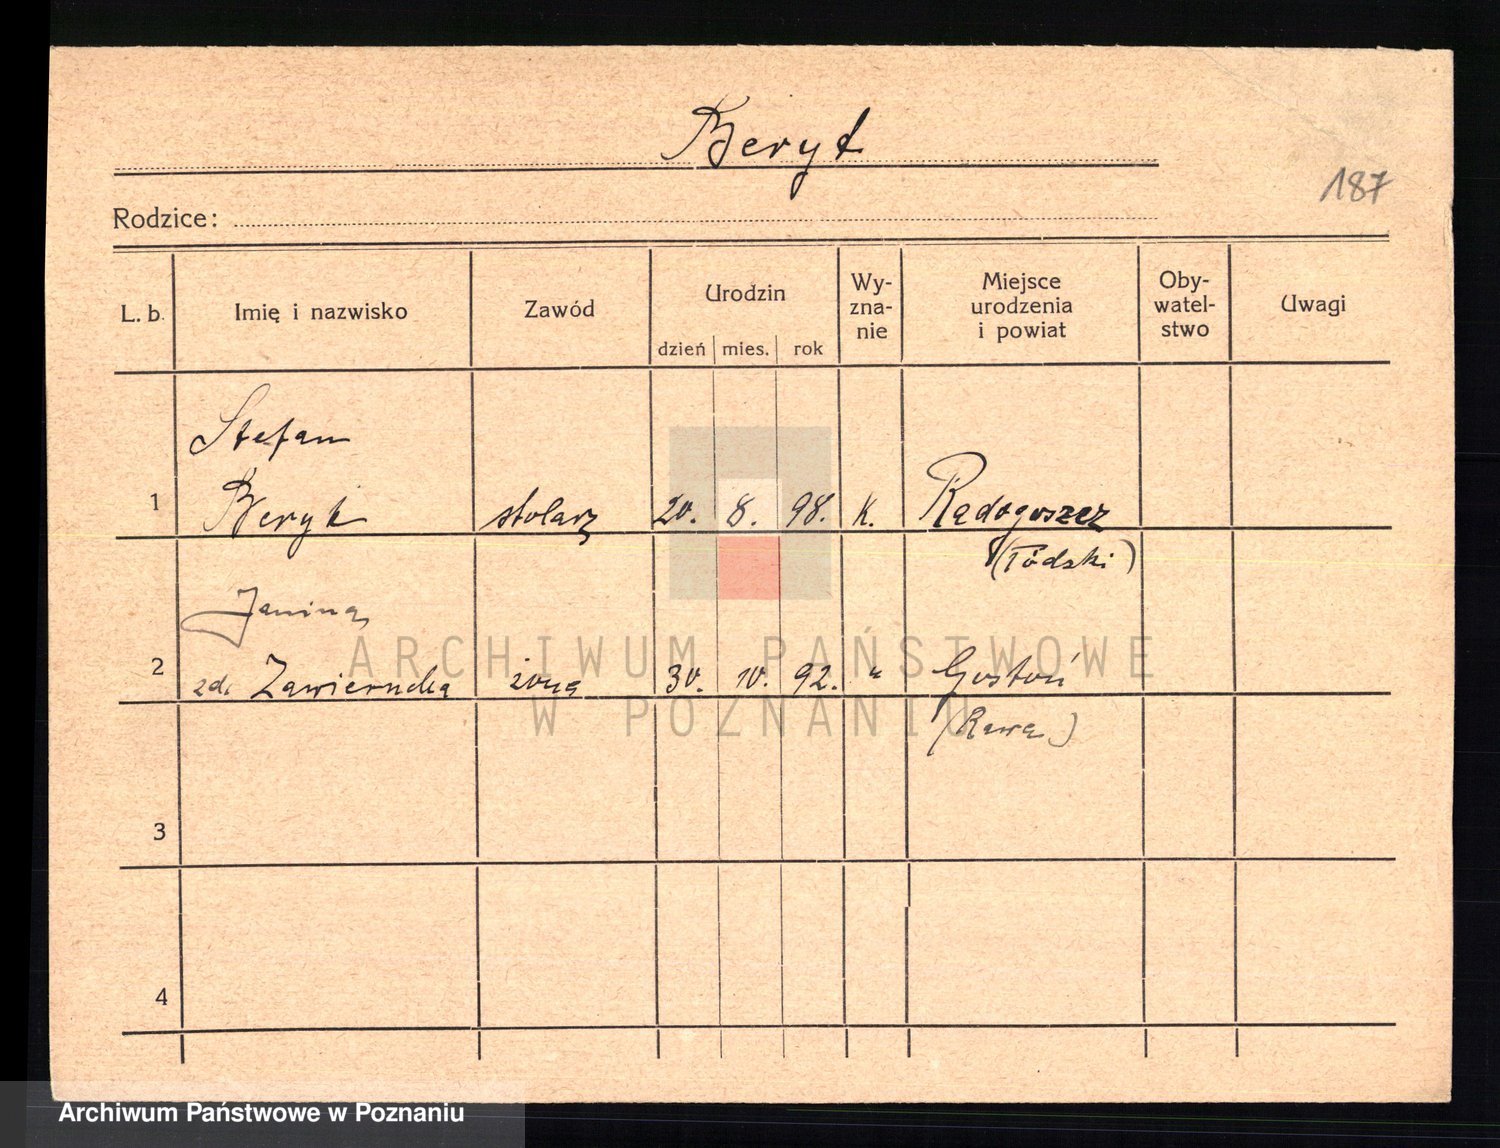 Beryt
187
Rodzice:
L. b. Imię i nazwisko Zawód Urodzin dzień mies. rok Wy-zna-nie Miejsce urodzenia i powiat Oby-watel-stwo Uwagi
Stefan
1 Beryt stolarz 20. 8. 98. k. Radogoszcz
(Łódzki)
Janina
2 zd. żona 30. 10. 92. "
(Rawa)
3
4
ARCHIWUM PAŃSTWOWE
W POZNANIU
Archiwum Państwowe w Poznaniu